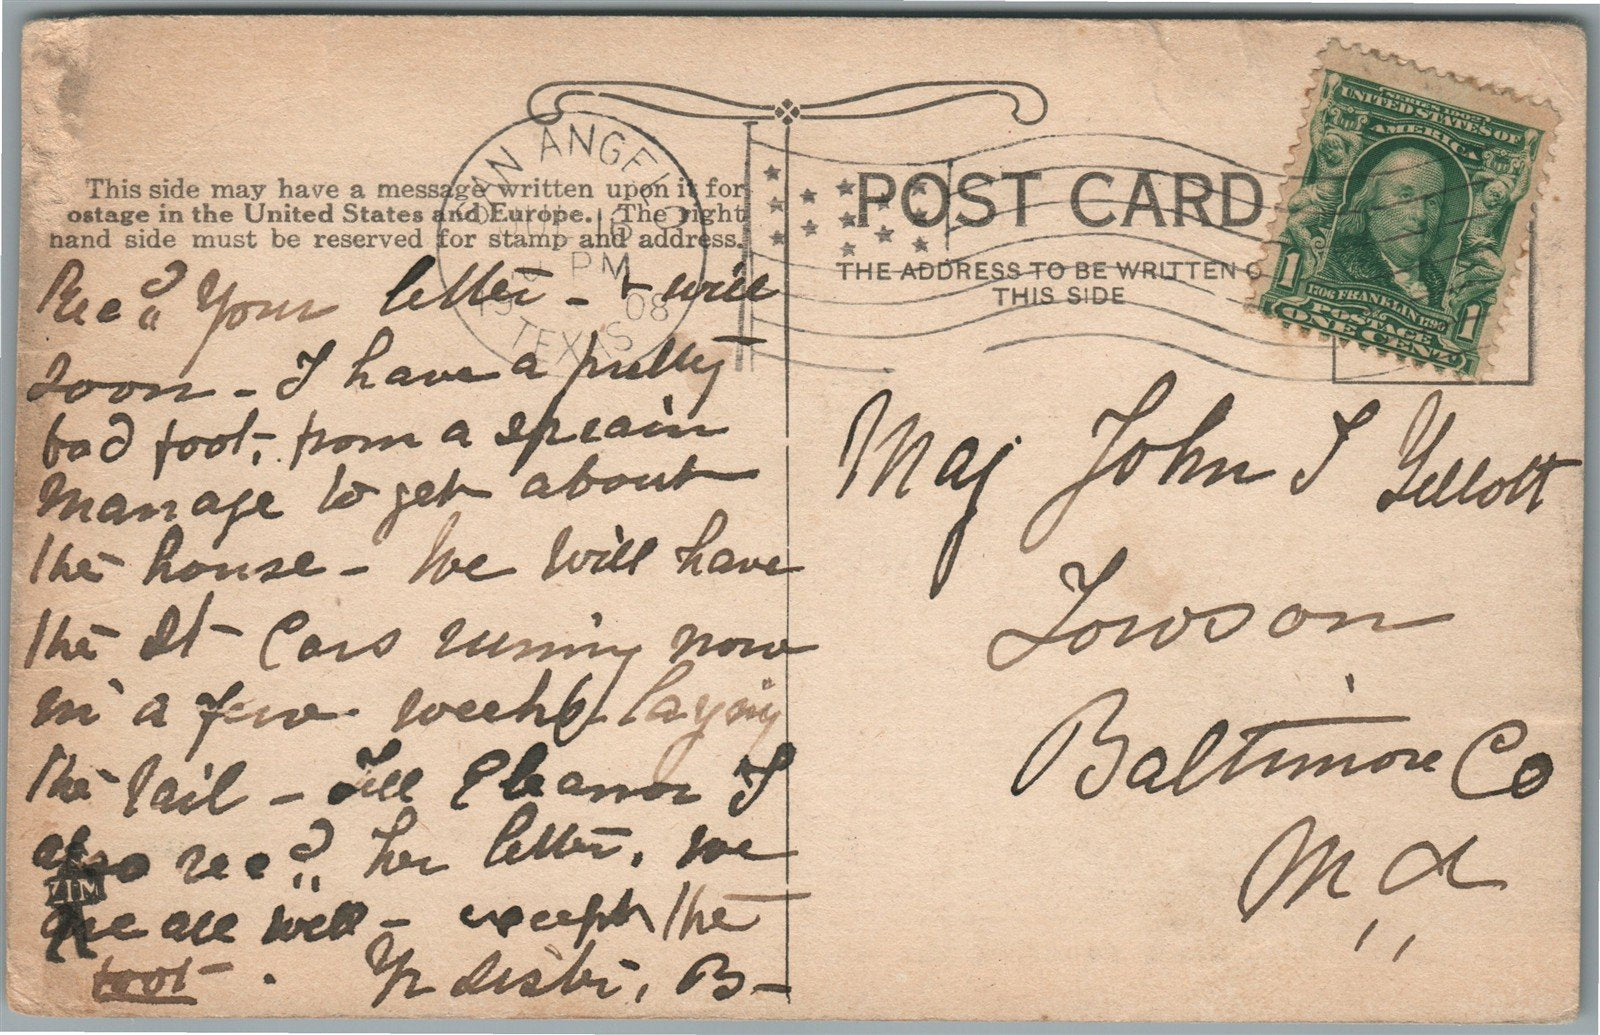 This side may have a message written upon it for
ostage in the United States and Europe. The right
hand side must be reserved for stamp and address.
Rec'd your letter - will
soon - I have a pretty
bad foot, from a sprain
manage to get about
the house - We will have
the St Cars runing now
in a few weeks laying
the rail - Tell Eleanor I
also rec'd her letter, we
are all well - except the
foot. Yr Sister, B-
SAN ANGELO
PM
1908
TEXAS
POST CARD
THE ADDRESS TO BE WRITTEN O
THIS SIDE
SERIES 1902
UNITED STATES OF
AMERICA
1706 FRANKLIN 1790
POSTAGE
1 ONE CENT 1
Maj John I Yellott
Towson
Baltimore Co
Md
ZIM